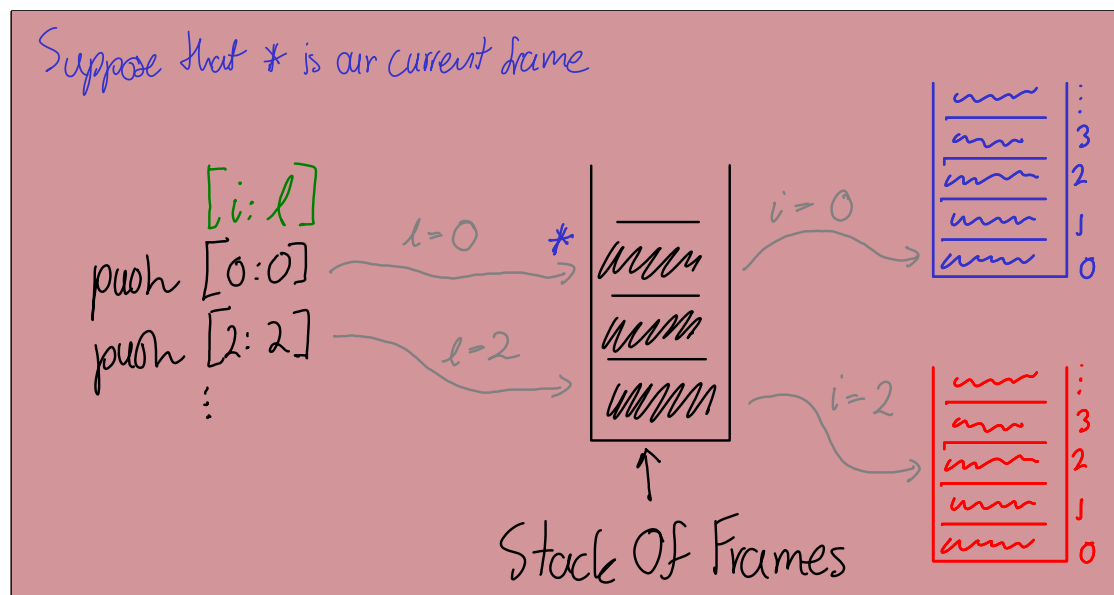 Suppose that * is our current frame
[i: l]
push [0:0]
push [2: 2]
⋮
l=0
l=2
*
i=0
i=2
⋮
3
2
1
0
⋮
3
2
1
0
Stack Of Frames